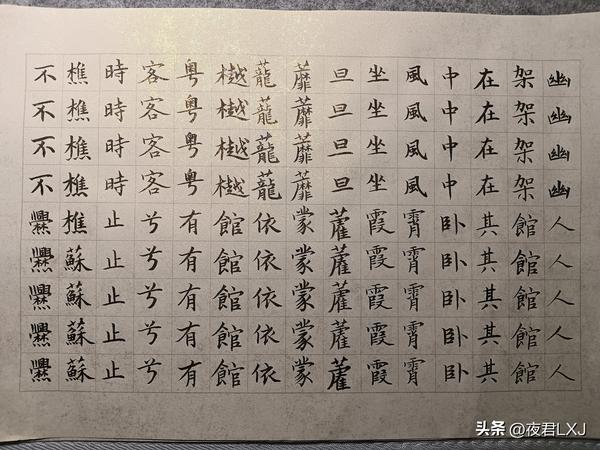 幽幽幽幽人人人人人
架架架架館館館館館
在在在在其其其其其
中中中中卧卧卧卧卧
風風風風霄霄霄霄霄
坐坐坐坐霞霞霞霞霞
旦旦旦旦藿藿藿藿藿
蘼蘼蘼蘼蒙蒙蒙蒙蒙
蘢蘢蘢蘢依依依依依
樾樾樾樾館館館館館
粤粤粤粤有有有有有
客客客客兮兮兮兮兮
時時時時止止止止止
樵樵樵樵樵蘇蘇蘇蘇
不不不不爨爨爨爨爨
头条 @夜君LXJ